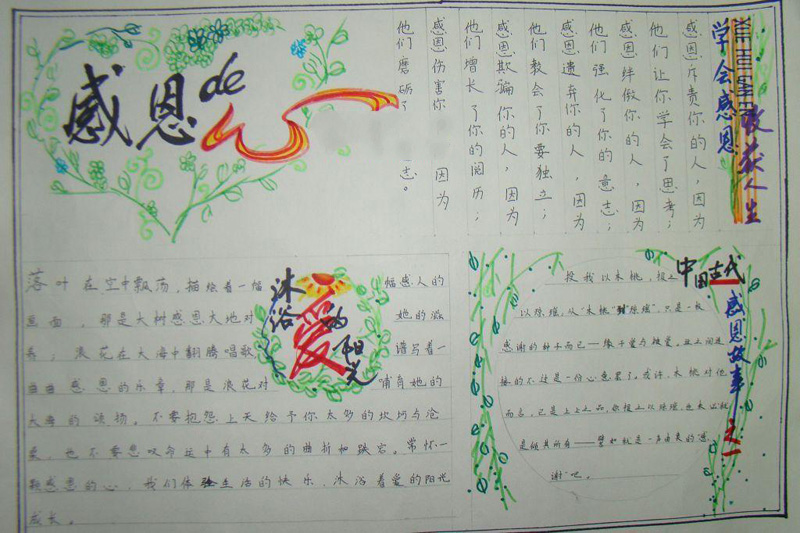 感恩de
学会感恩
收获人生
感恩斥责你的人，因为
他们让你学会了思考；
感恩绊倒你的人，因为
他们强化了你的意志；
感恩遗弃你的人，因为
他们教会了你要独立；
感恩欺骗你的人，因为
他们增长了你的阅历；
感恩伤害你 因为
他们磨砺了 志。
沐浴
爱的
阳光
落叶在空中飘荡，描绘着一幅 幅感人的
画面，那是大树感恩大地对 她的滋
养；浪花在大海中翻腾唱歌， 谱写着一
曲曲感恩的乐章，那是浪花对 哺育她的
大海的颂扬。不要抱怨上天给予你太多的坎坷与沧
桑，也不要悲叹命运中有太多的曲折和跌宕。常怀一
颗感恩的心，我们体验生活的快乐，沐浴着爱的阳光
成长。
中国古代
感恩故事
之一
投我以木桃，报之
以琼瑶，从“木桃”到“琼瑶”，只是一粒
感谢的种子而已——缘于爱与被爱。
谢”吧。